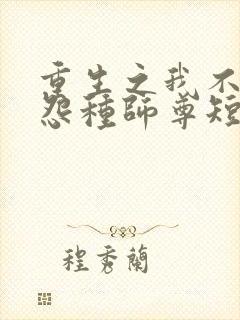 重生之我不
怨種師尊短
程秀蘭